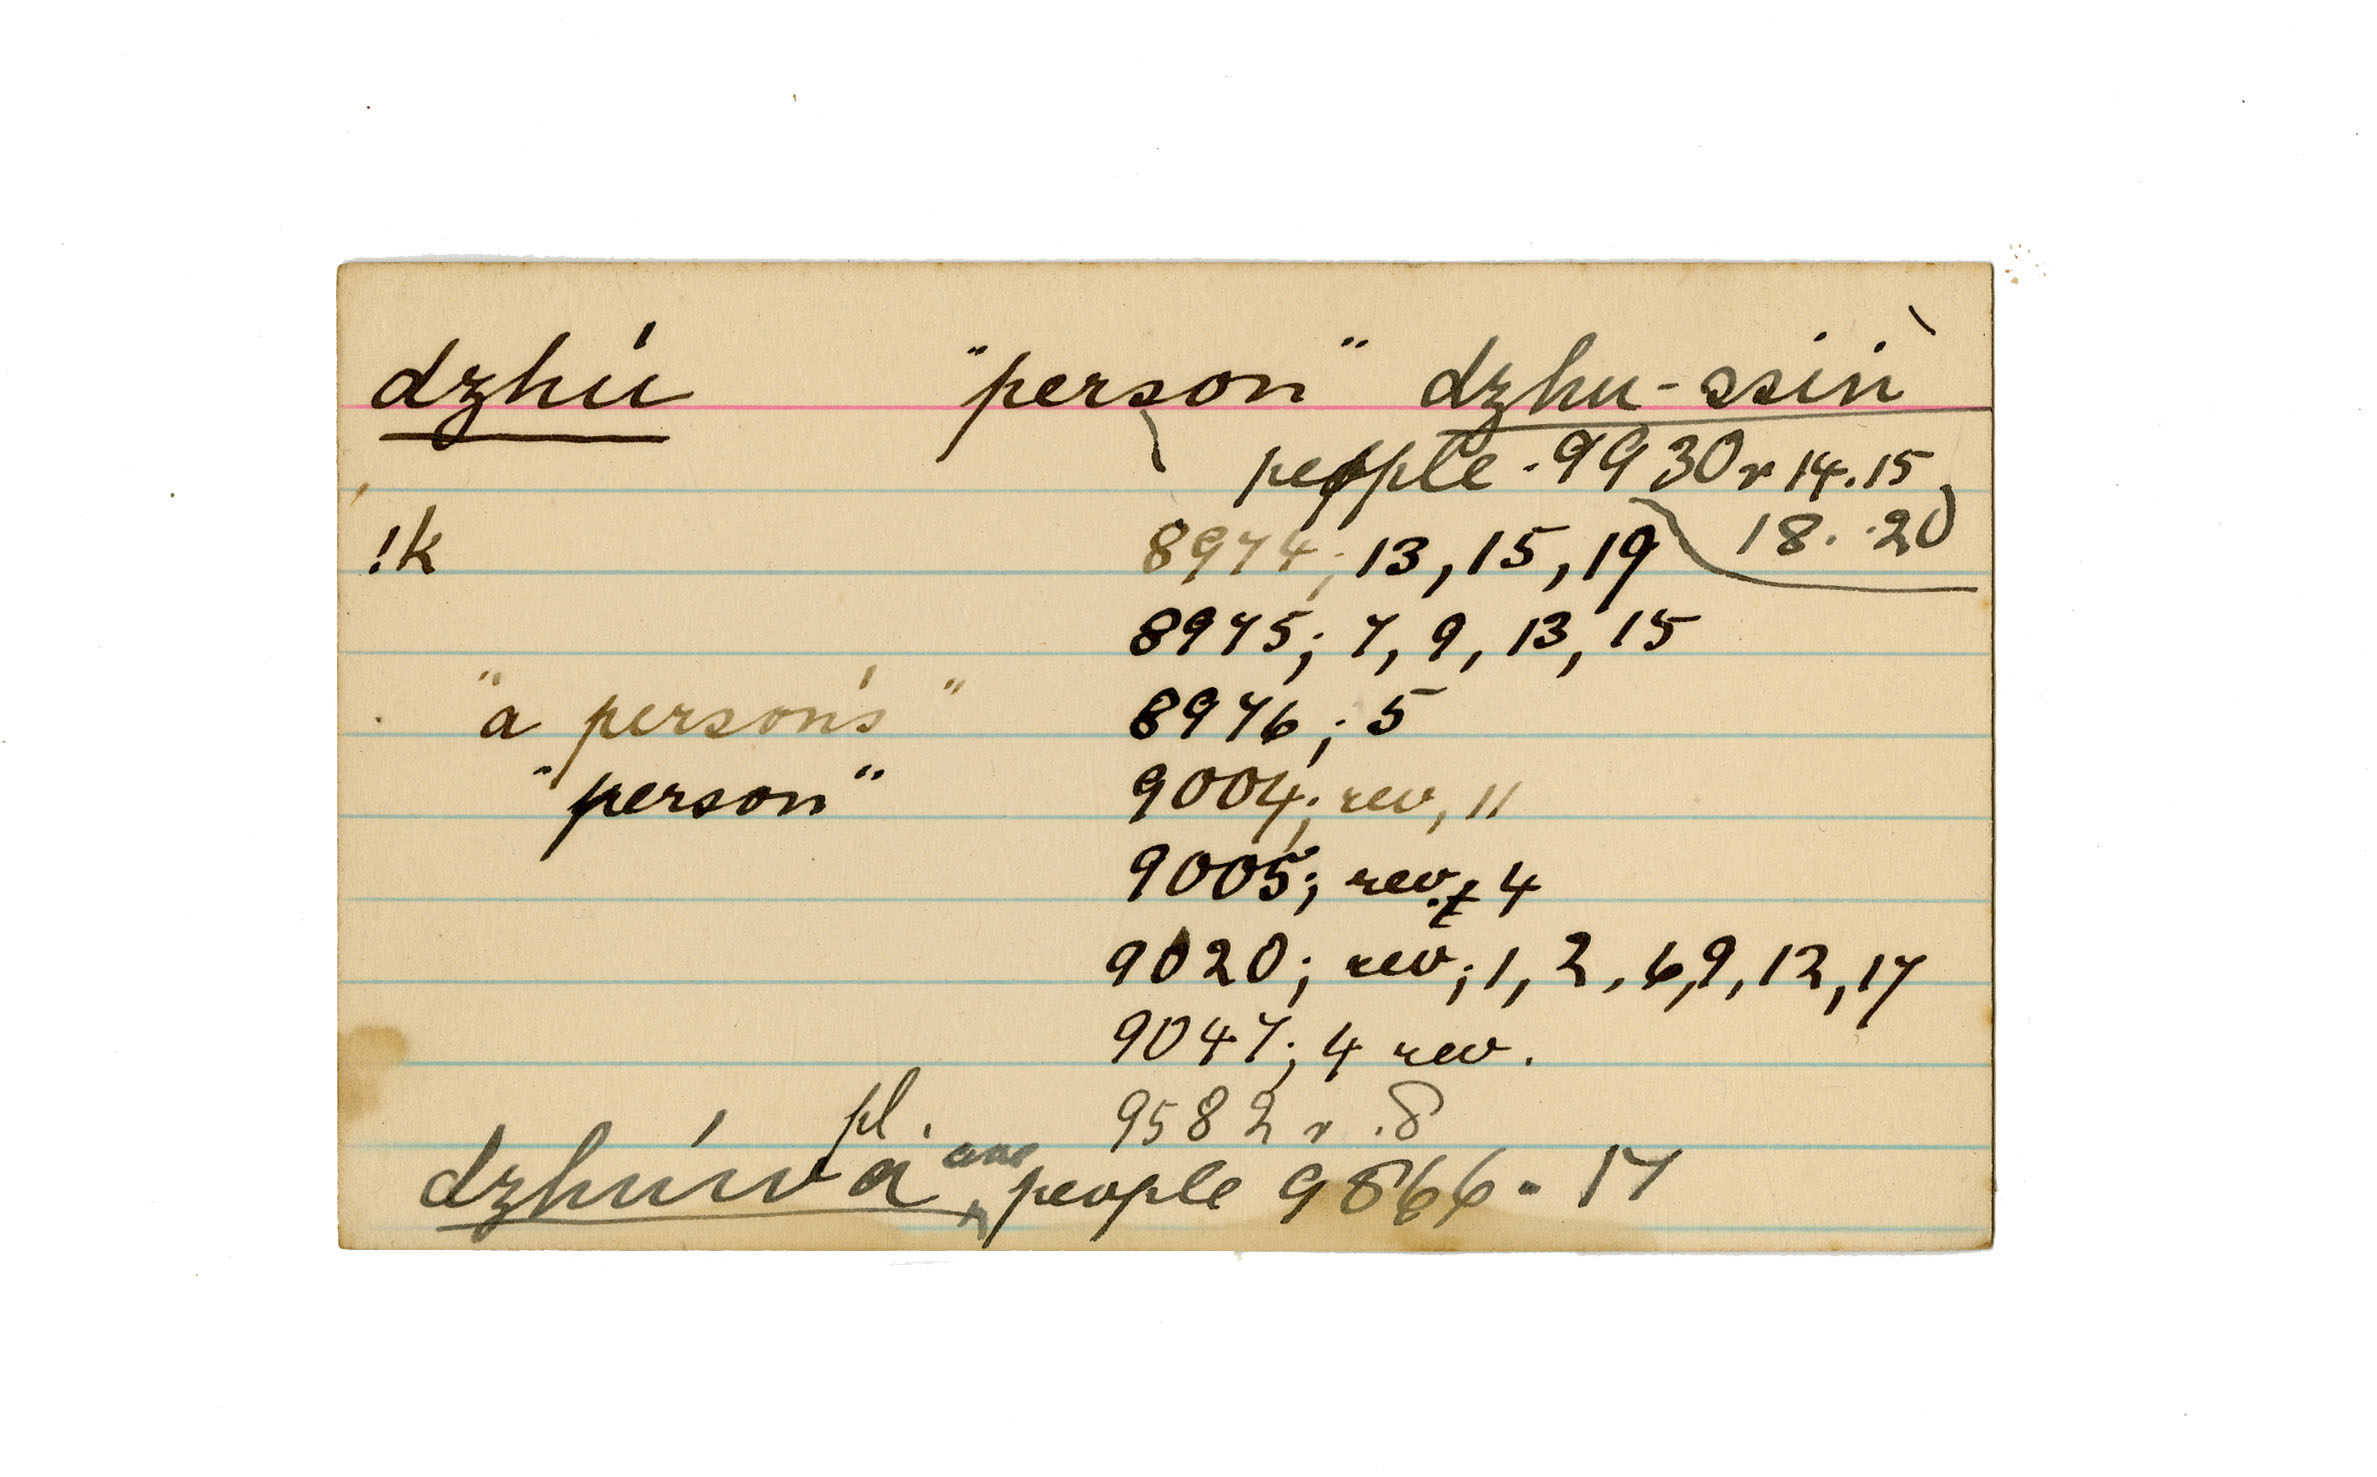 dzhú "person" dzhu-ssiǹ
people. 9930 r 14.15
18. .20
!k 8974; 13, 15, 19
8975; 7, 9, 13, 15
"a person's" 8976; 5
"person" 9004; rev, 11
9005; rev. 4
9020; rev; 1, 2, 6, 9, 12, 17
9047; 4 rev.
9582 r .8
pl.
dzhúwa are people 9866. 17